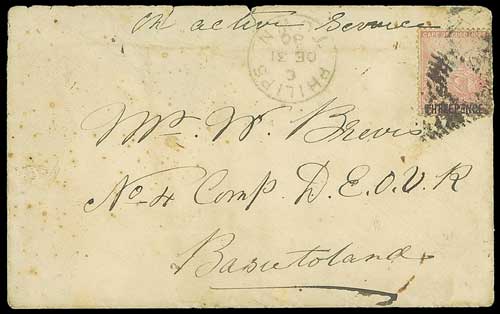 On active Service
PHILIPS
C
DE 31
80
CAPE OF GOOD HOPE
THREEPENCE
Mr. W. Brevis
No 4 Comp. D. E. O. V. R
Basutoland